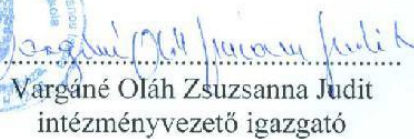 Vargáné Oláh Zsuzsanna Judit
Vargáné Oláh Zsuzsanna Judit
intézményvezető igazgató